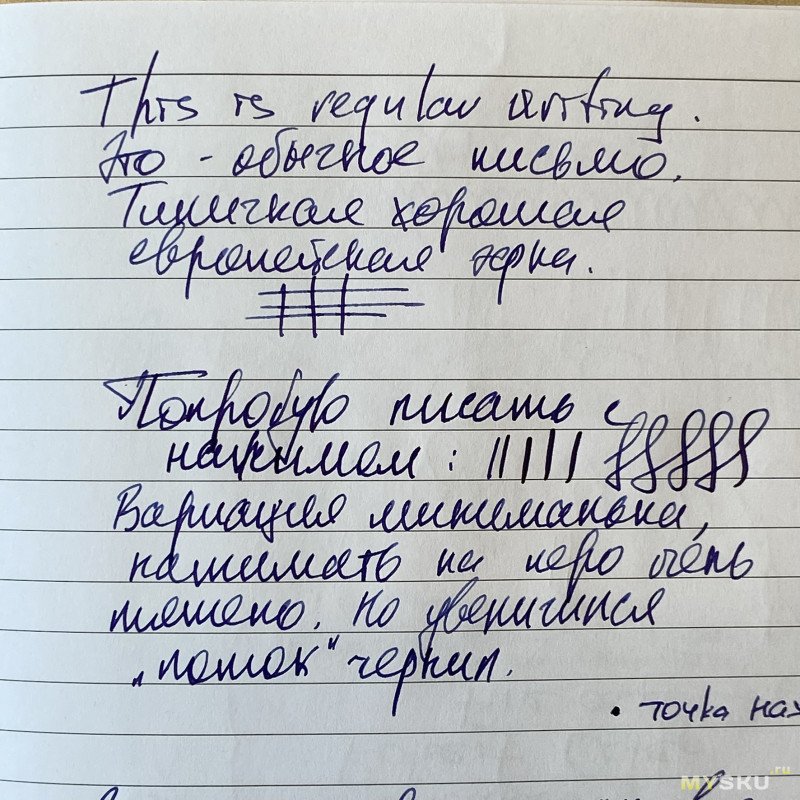 This is regular writing.
Это - обычное письмо.
Типичная хорошая
европейская эфка.
Попробую писать с
нажимом:
Вариация минимальна,
нажимать на перо очень
тяжело. Но увеличился
„поток" чернил.
• точка
MYSKU.ru